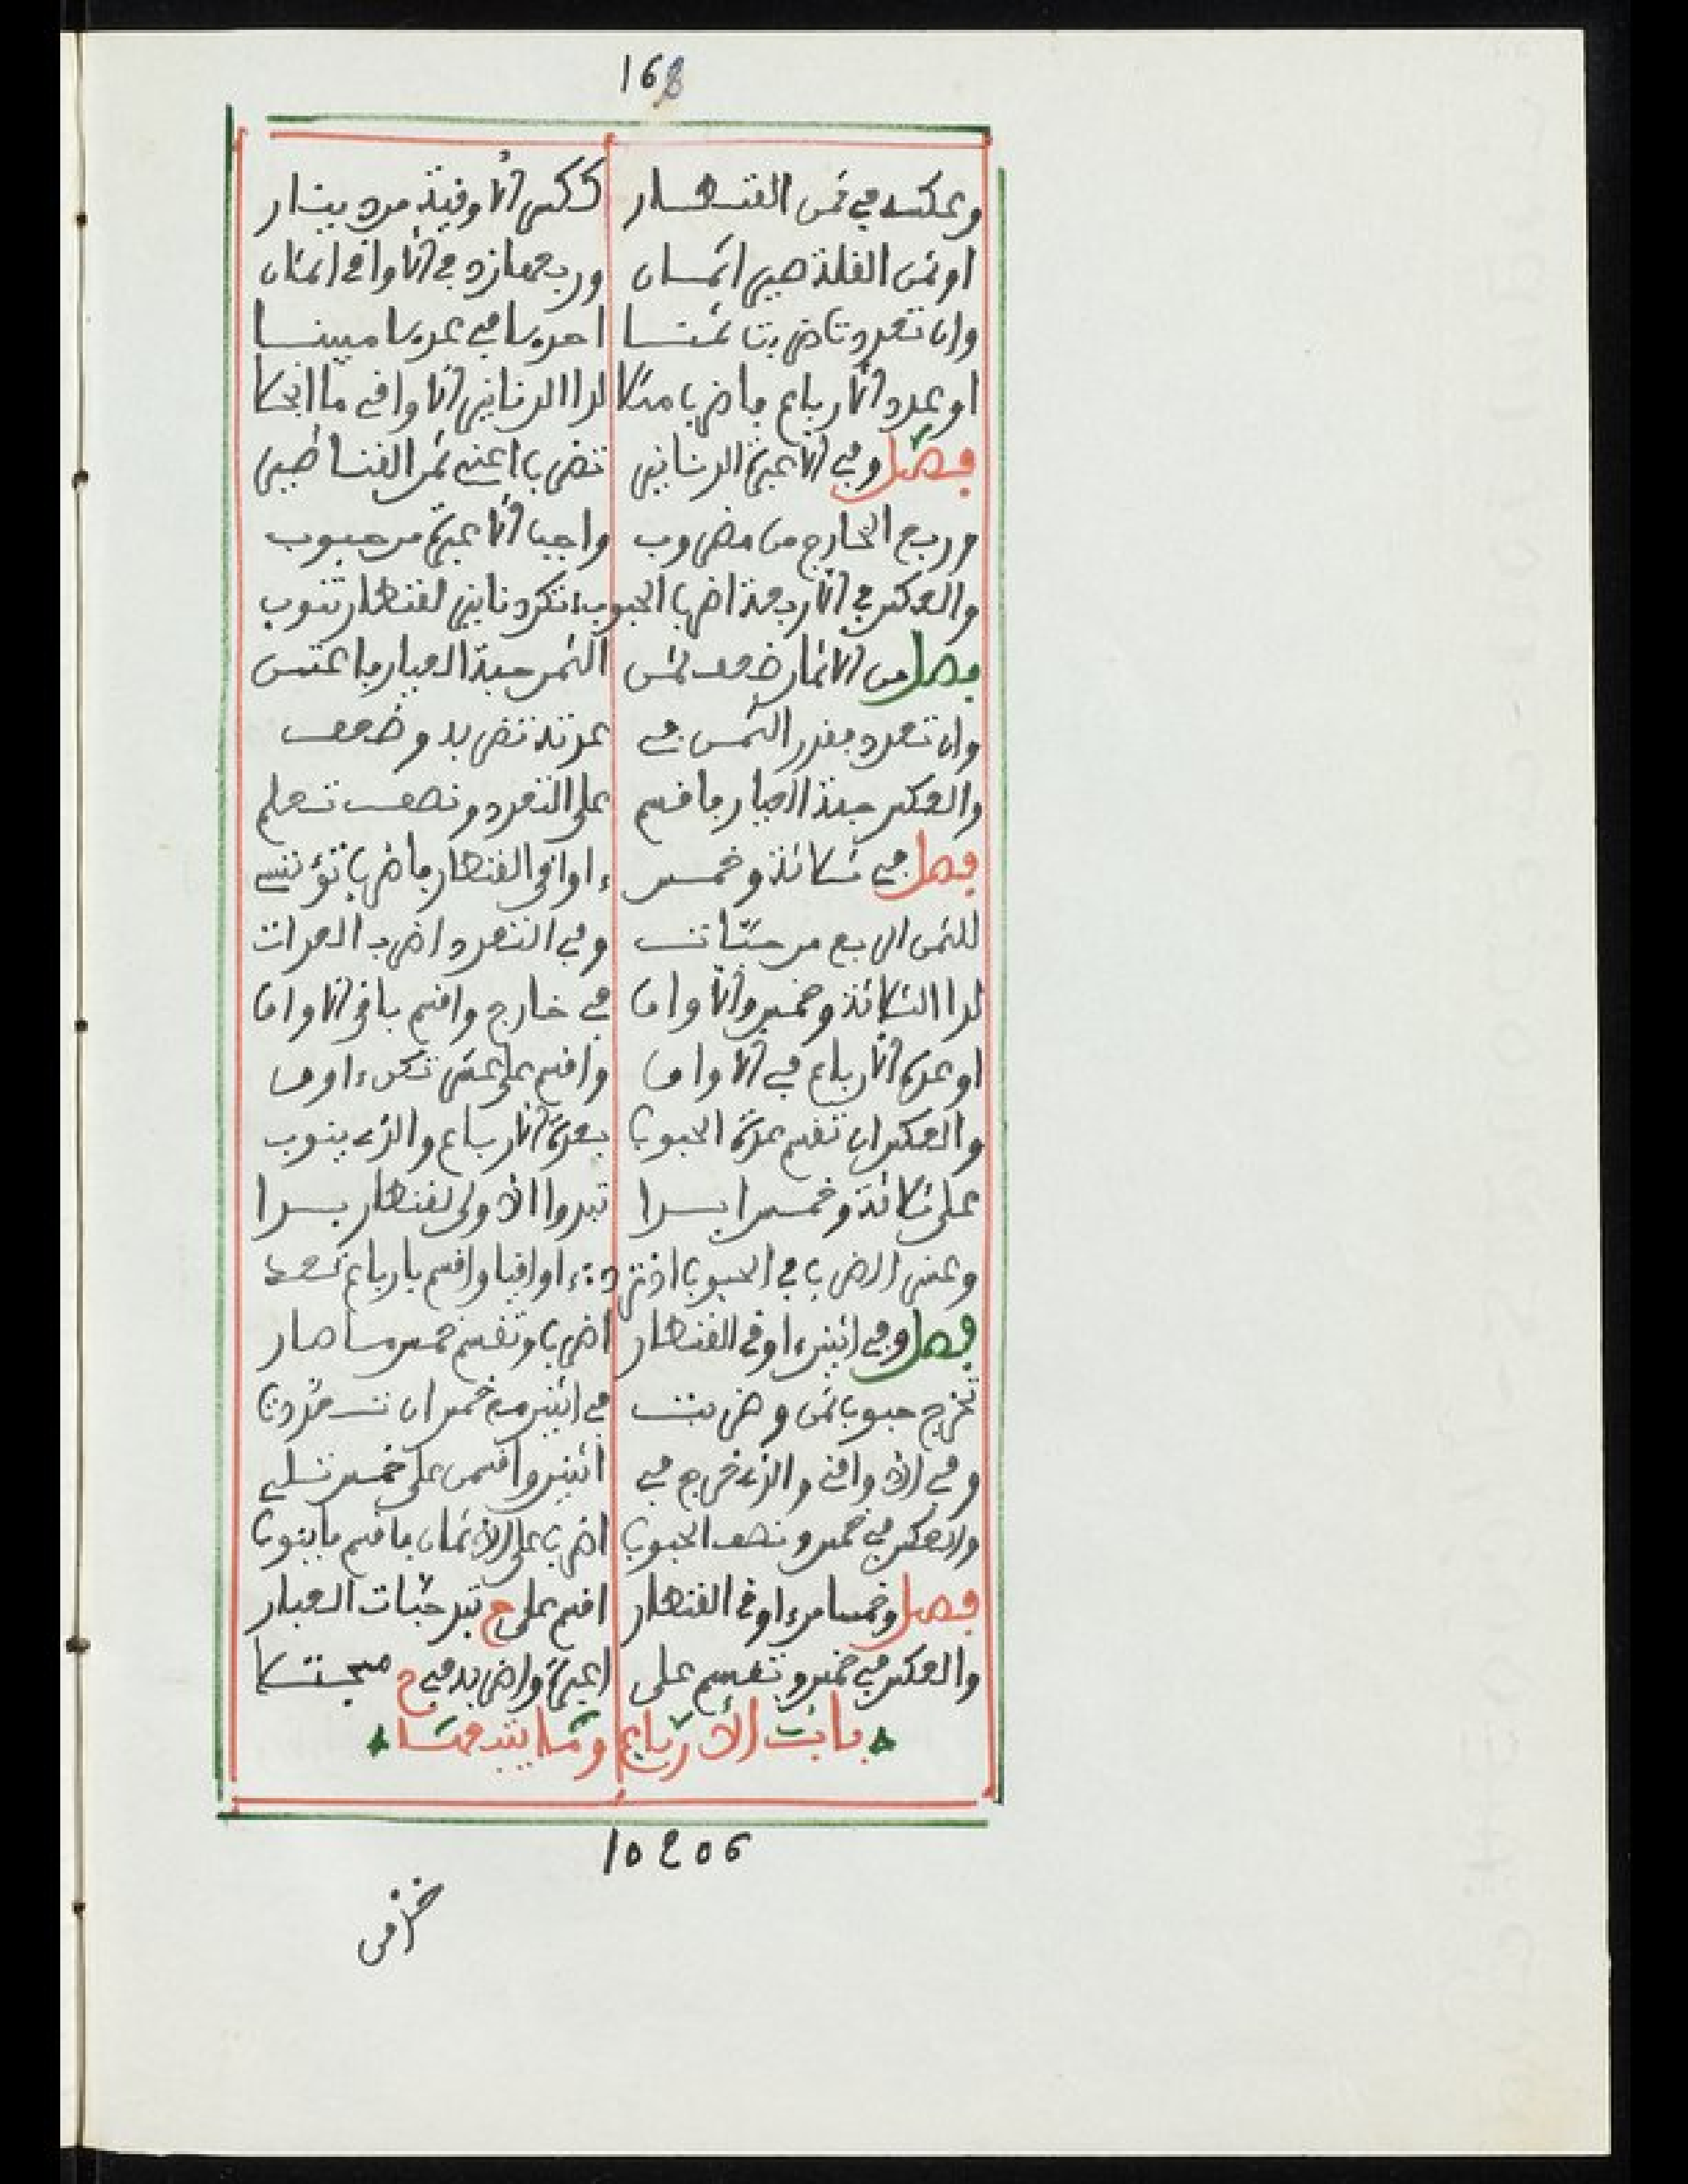 168
وعكسه في ثمن القنطار ككس الاوقية من دينار
او ثمن القلة حين اثمان وربعها زد في الاواقي اثمان
وان تعدد تاضربتا ثمنا احدها في عدها مبينا
او عدد الارباع فاضربا مثلا لذا الدنانير الاواقي ما انجلا
فصل وفي الاعبرة الدنانير تضربا اعني ثمن القناطير
وربع الخارج من مضروب واجبا الاعبرة من حبوب
والعكس في الاربعة اضربا الحبوب تكن دنانير لقنطار تنوب
فصل من الاثمار ضعف ثمن الثمر حبة العيار فاعتن
وان تعدد مفرد الثمن في عدته تضربه وضعف
والعكس حبة العيار فاقسم على التعدد ونصف تعلم
فصل في ثلاثة وخمس ءاواقي القنطار فاضربا تؤتنسي
للثمن الربع من حبات وفي التعدد اضرب العدات
لذا الثلاثة وخمس والاواقا في خارج واقسم باقي الاواقا
او عدة الارباع في الاواقا واقسم على عشر تكن ءاوفا
والعكس ان تقسم عدة الحبوبا بعدة الارباع والذي ينوب
على ثلاثة وخمس ابدا تبدوا الاولى لقنطار بدا
وعشر الضربا في الحبوبا اذ ترد ءاواقيا واقسم بارباع تعد
فصل وفي اثنين ءاوقي القنطار اضربا وتقسم خمس ما صار
تخرج حبوبا ثمن وضربت في اثنين مع خمس ان تعددت
وفي الاواقي والذي خرج في اثنين واقسمن على خمس تلي
والعكس في خمس ونصف الحبوبا اضربا على الاثمان فاقسم ما ينوبا
فصل وخمسا من ءاوقي القنطار اقسم على ح تبد حبات العيار
والعكس في خمس وتقسم على اعبرة واضربه في ح مجتلا
باب الارباع وما يتبعها
10206
خرافي